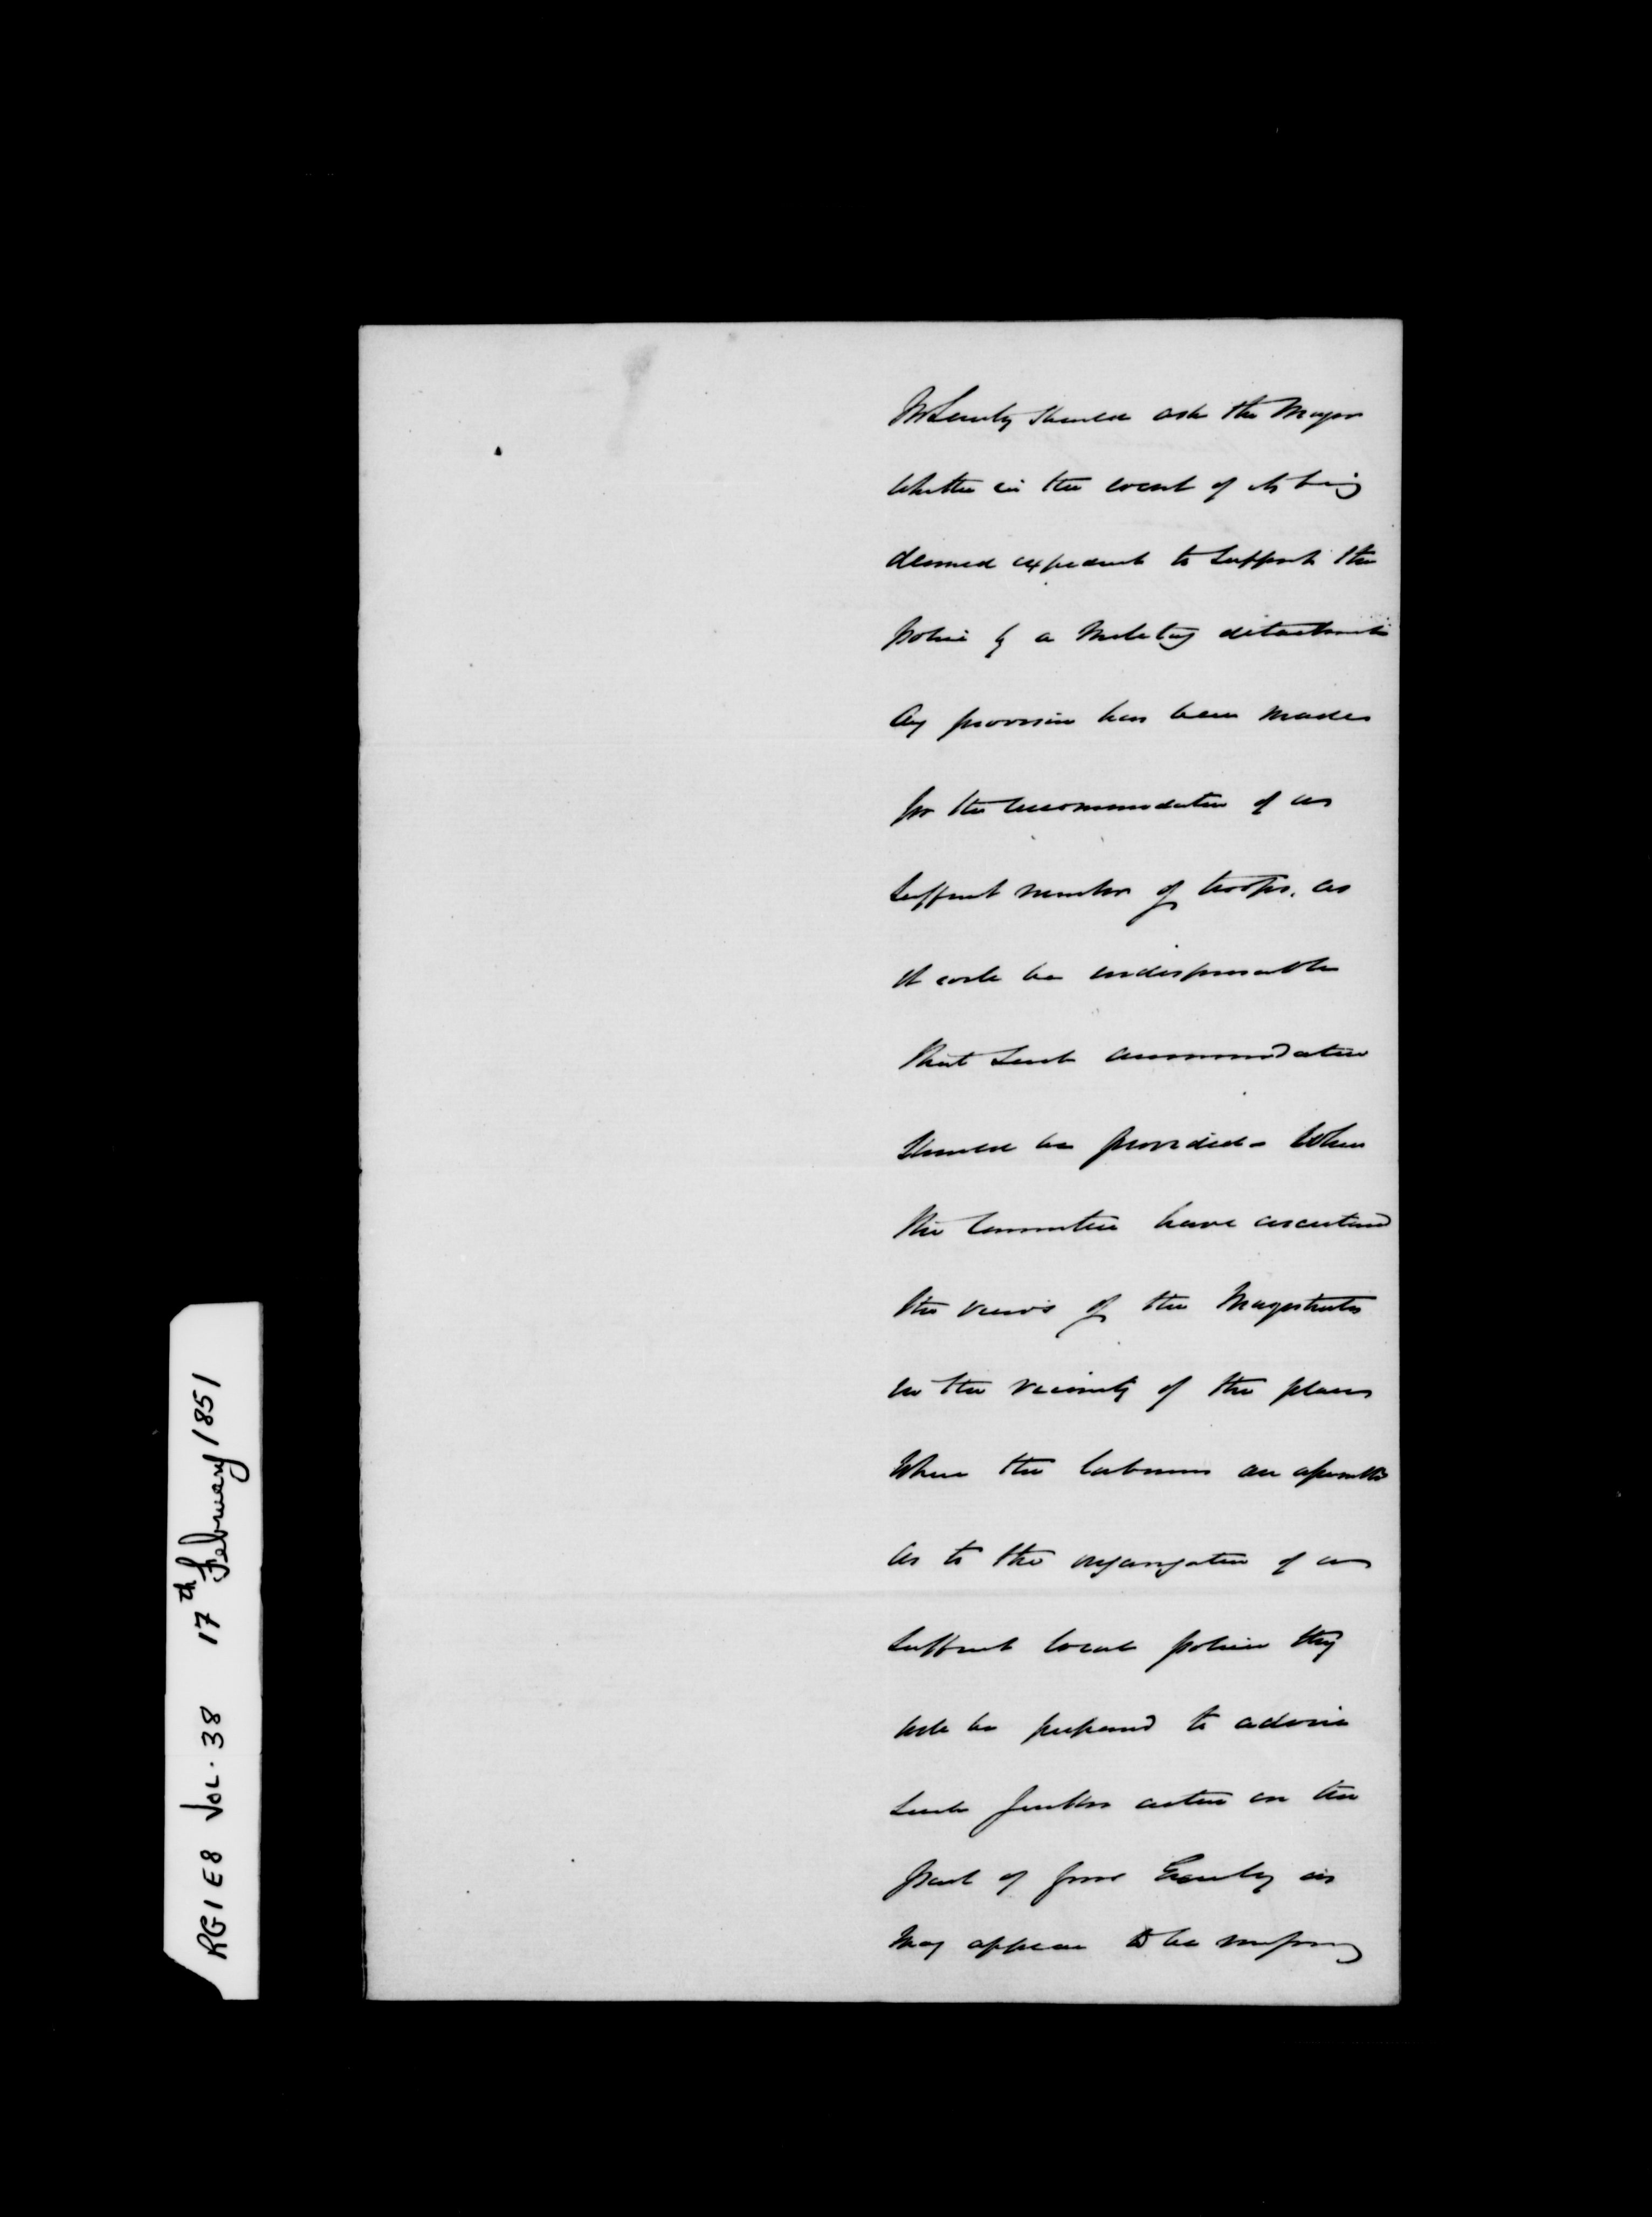 Mr Secretary should ask the Mayor
whether in the event of its being
deemed expedient to support the
police by a Military detachment
any provision has been made
for the accommodation of a
sufficient number of troops. as
it will be indispensable
that such accommodation
should be provided - When
the Committee have ascertained
the views of the Magistrates
in the vicinity of the places
Where the laborers are assembled
as to the organization of a
sufficient local police they
will be prepared to advise
such further action on the
part of Your Excellency as
may appear to be necessary
RG1 E8 VOL. 38 17th February 1851